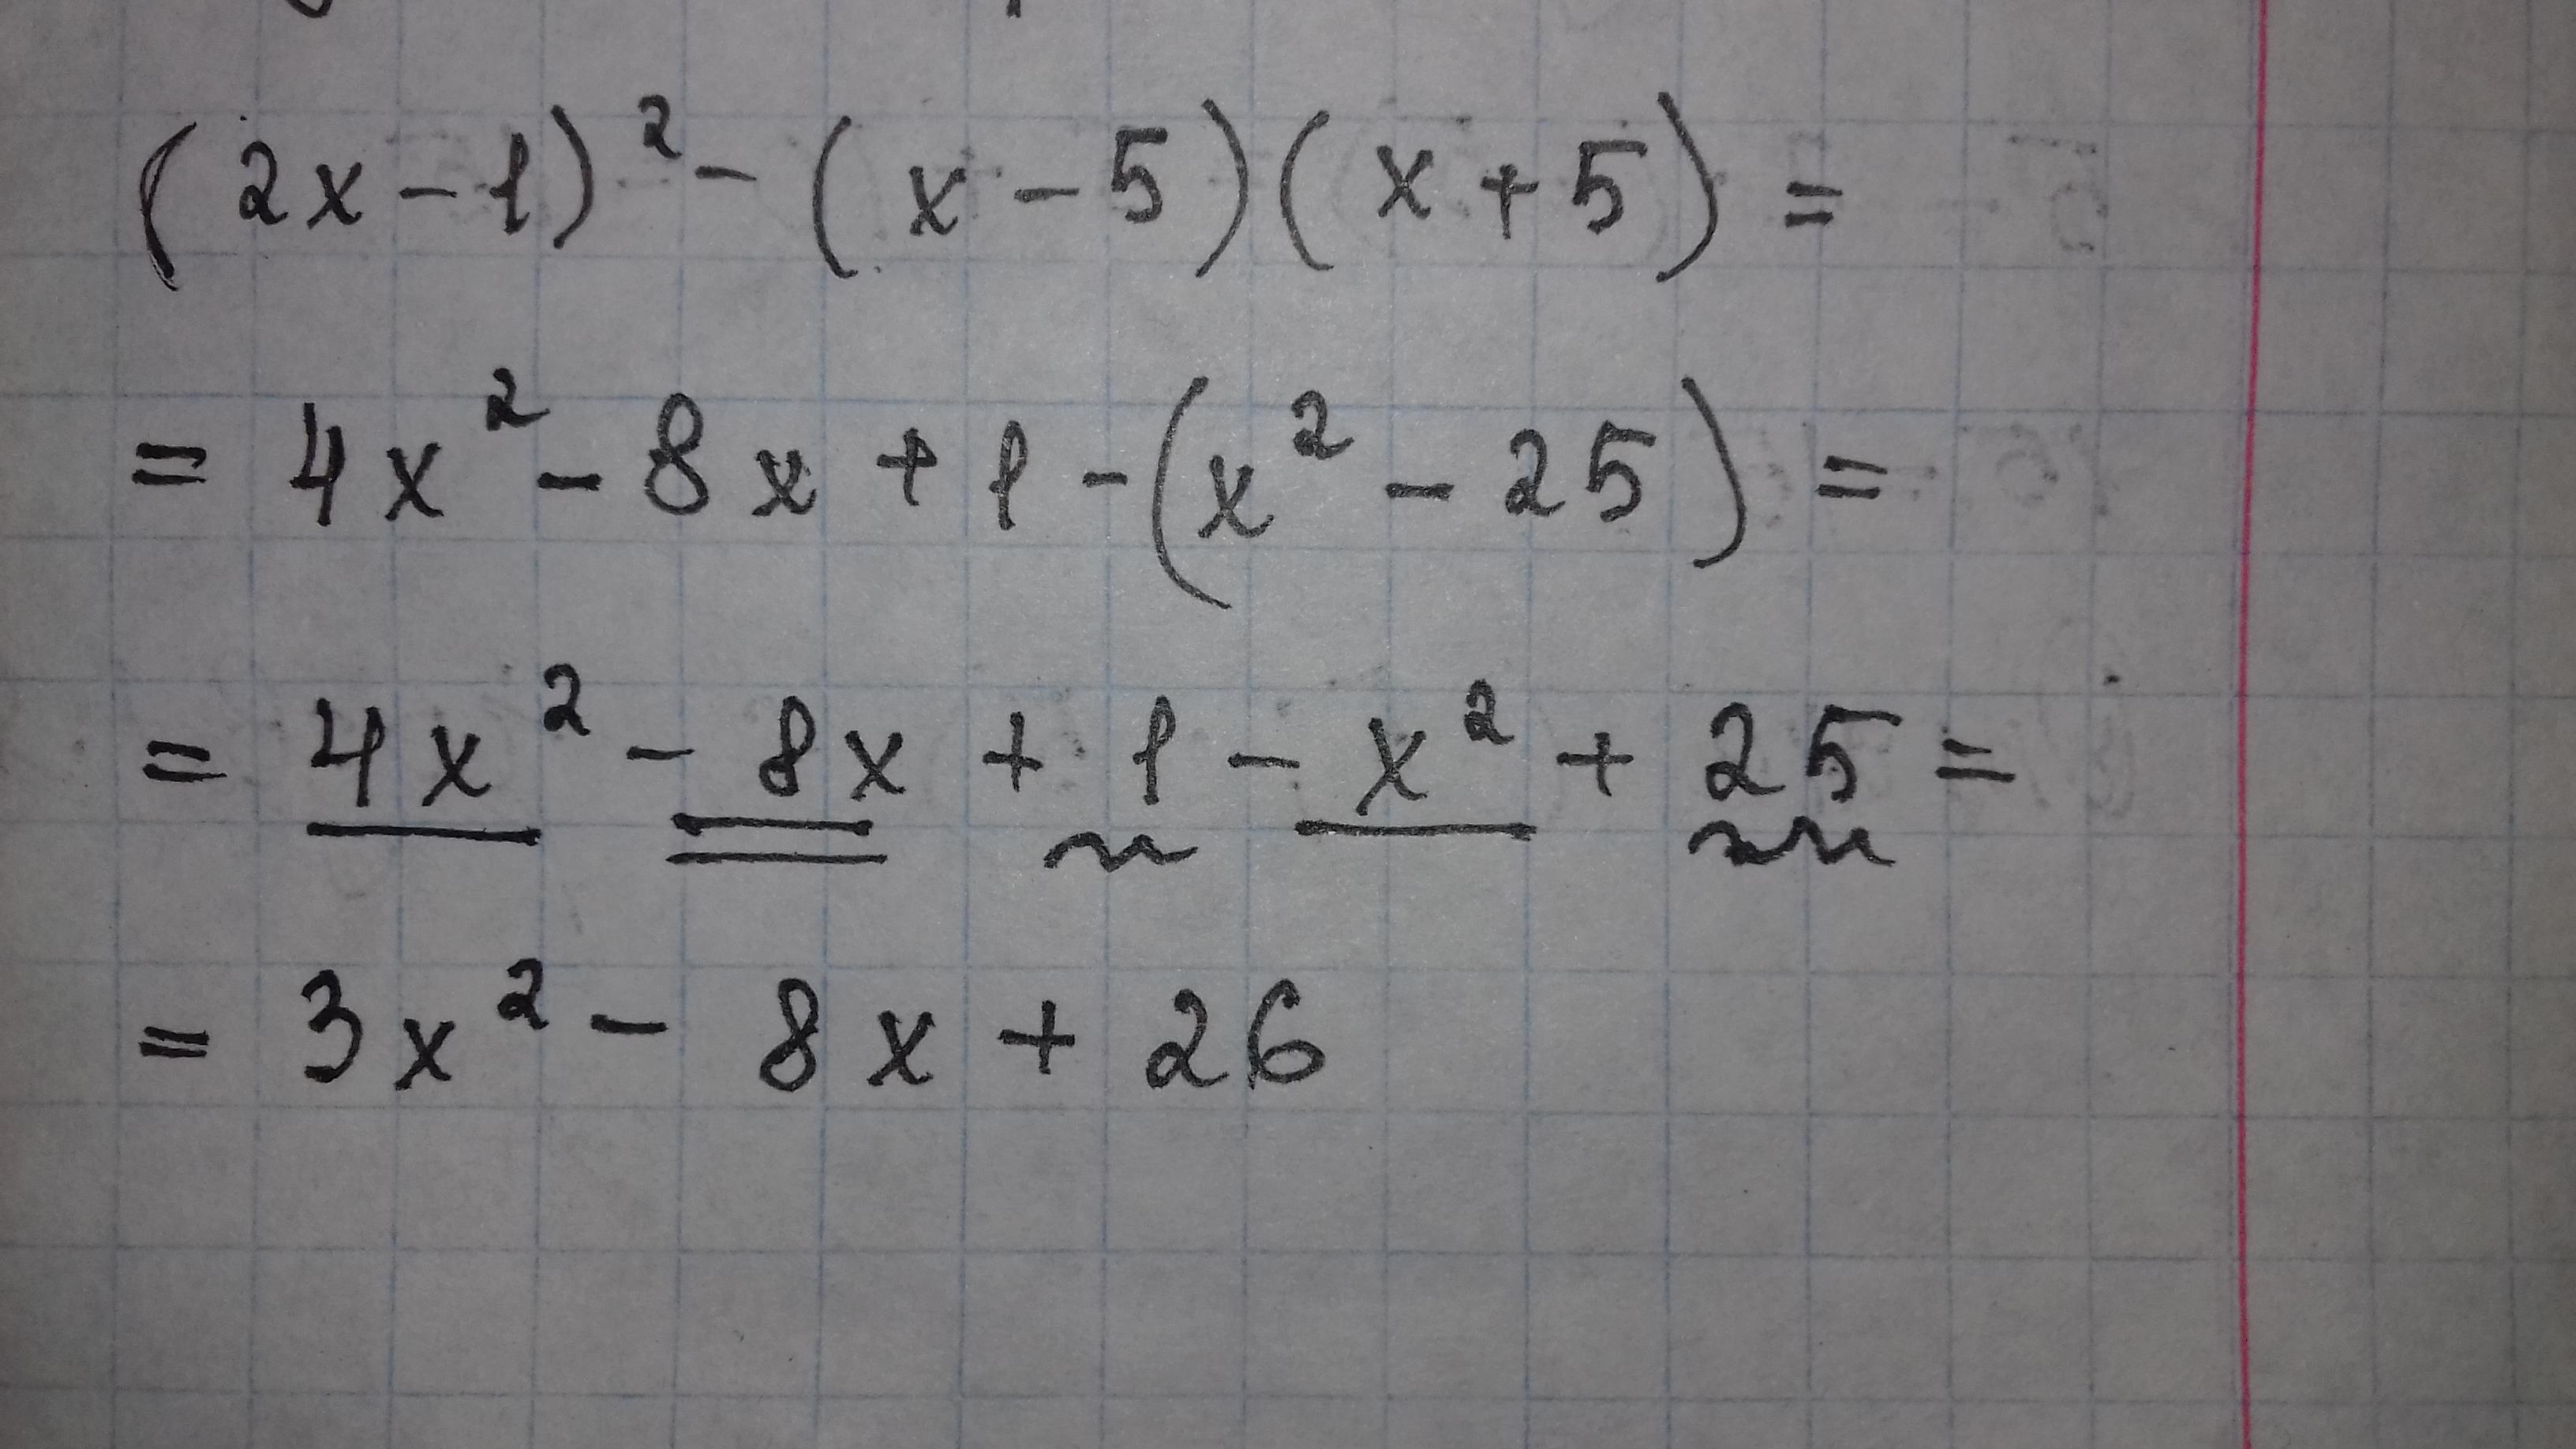 (2x-1)² - (x-5)(x+5) =
= 4x² - 8x + 1 - (x² - 25) =
= 4x² - 8x + 1 - x² + 25 =
= 3x² - 8x + 26